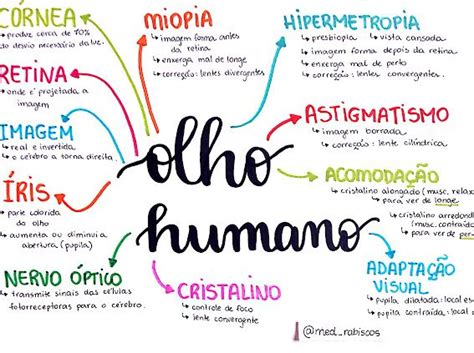 CÓRNEA
produz cerca de 70%
do desvio necessário da luz.
RETINA
onde é projetada a
imagem
IMAGEM
real e invertida
o cérebro a torna direita.
ÍRIS
parte colorida
do olho
aumenta ou diminui a
abertura (pupila)
NERVO ÓPTICO
transmite sinais das células
fotorreceptoras para o cérebro.
MIOPIA
imagem forma antes
da retina
enxerga mal de longe
correção: lentes divergentes
olho
humano
CRISTALINO
controle de foco
lente convergente
HIPERMETROPIA
presbiopia → vista cansada
imagem forma depois da retina
enxerga mal de perto
correção: lentes convergentes.
ASTIGMATISMO
imagem borrada
correção: lente cilíndrica
ACOMODAÇÃO
cristalino alongado (musc. relax
para ver de longe
cristalino arredond
(musc. contraíd
para ver de per
ADAPTAÇÃO
VISUAL
pupila dilatada: local es
pupila contraída: local
@med_rabiscos